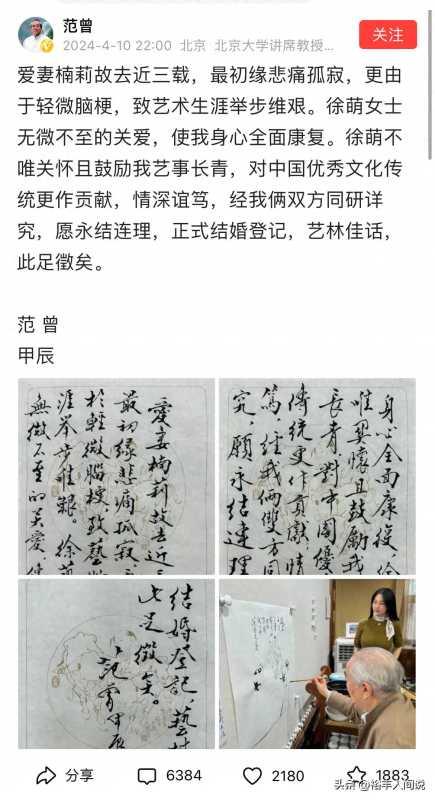 范曾
2024-4-10 22:00 北京 北京大学讲席教授...
关注
爱妻楠莉故去近三载，最初缘悲痛孤寂，更由
于轻微脑梗，致艺术生涯举步维艰。徐萌女士
无微不至的关爱，使我身心全面康复。徐萌不
唯关怀且鼓励我艺事长青，对中国优秀文化传
统更作贡献，情深谊笃，经我俩双方同研详
究，愿永结连理，正式结婚登记，艺林佳话，
此足徵矣。
范 曾
甲辰
愛妻楠莉故去近三
最初緣悲痛孤寂
於輕微腦梗，致藝
涯举步維艱。徐萌
無微不至的关爱
身心全面康復。徐
唯関懷且鼓励我
長青，對中國優
傳統更作貢獻，情
篤，經我俩雙方同
究，願永结連理
结婚登记，藝林
此足徵矣。
范曾甲辰
分享
6384
2180
1883
头条 @裕丰人间说